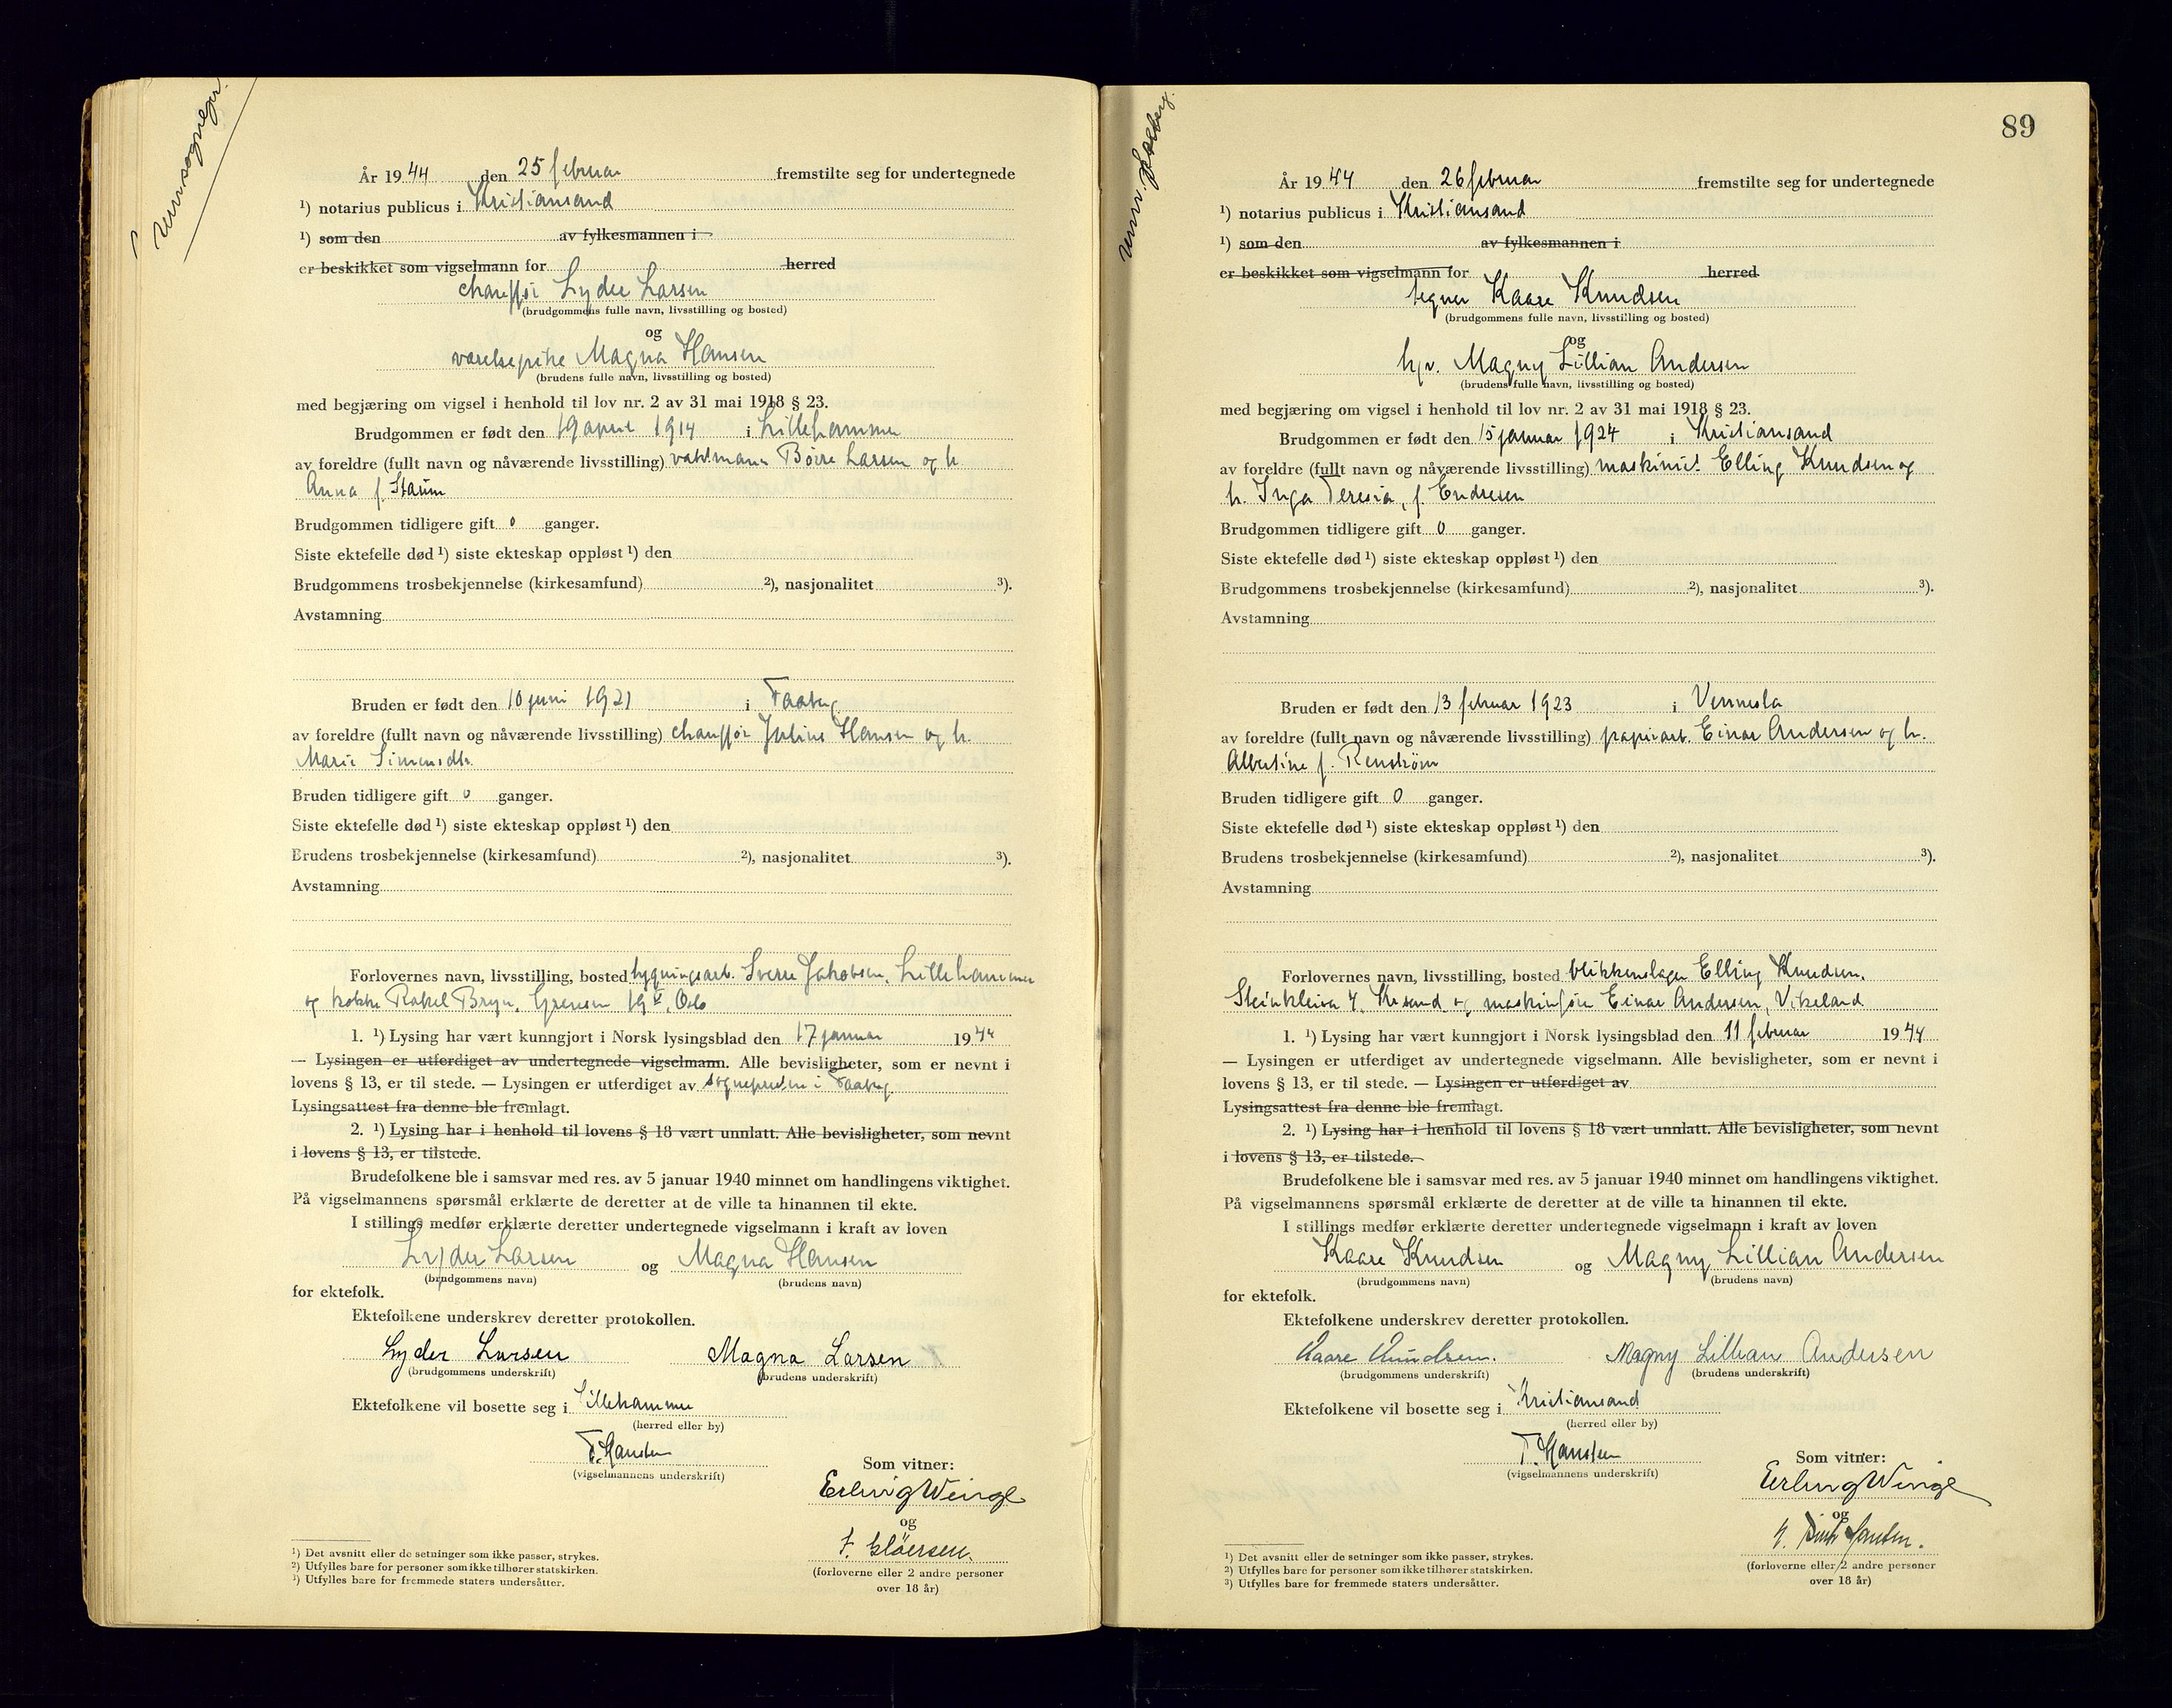 År 1944 den 25 februar fremstilte seg for undertegnede
¹) notarius publicus i Kristiansand
¹) som den av fylkesmannen i
er beskikket som vigselmann for herred
chauffør Lyder Larsen
(brudgommens fulle navn, livsstilling og bosted)
og
værelsepike Magna Hansen
(brudens fulle navn, livsstilling og bosted)
med begjæring om vigsel i henhold til lov nr. 2 av 31 mai 1918 § 23.
Brudgommen er født den 19 april 1914 i Lillehammer
av foreldre (fullt navn og nåværende livsstilling) vaktmann Børre Larsen og h.
Anna f.
Brudgommen tidligere gift 0 ganger.
Siste ektefelle død ¹) siste ekteskap oppløst ¹) den
Brudgommens trosbekjennelse (kirkesamfund) ²), nasjonalitet ³).
Avstamning
Bruden er født den 10 juni 1921 i Faaberg
av foreldre (fullt navn og nåværende livsstilling) chauffør Julius Hansen og h.
Marie Simensdtr.
Bruden tidligere gift 0 ganger.
Siste ektefelle død ¹) siste ekteskap oppløst ¹) den
Brudens trosbekjennelse (kirkesamfund) ²), nasjonalitet ³).
Avstamning
Forlovernes navn, livsstilling, bosted bygningsarb. Sverre Jakobsen, Lillehammer
og kokke Rakel Bryn, Grensen 19 V, Oslo
1. ¹) Lysing har vært kunngjort i Norsk lysingsblad den 17 januar 1944
— Lysingen er utferdiget av undertegnede vigselmann. Alle bevisligheter, som er nevnt i
lovens § 13, er til stede. — Lysingen er utferdiget av sognepresten i Faaberg
Lysingsattest fra denne ble fremlagt.
2. ¹) Lysing har i henhold til lovens § 18 vært unnlatt. Alle bevisligheter, som nevnt
i lovens § 13, er tilstede.
Brudefolkene ble i samsvar med res. av 5 januar 1940 minnet om handlingens viktighet.
På vigselmannens spørsmål erklærte de deretter at de ville ta hinannen til ekte.
I stillings medfør erklærte deretter undertegnede vigselmann i kraft av loven
Lyder Larsen og Magna Hansen
(brudgommens navn) (brudens navn)
for ektefolk.
Ektefolkene underskrev deretter protokollen.
Lyder Larsen Magna Larsen
(brudgommens underskrift) (brudens underskrift)
Ektefolkene vil bosette seg i Lillehammer
(herred eller by)
T. Hansten
(vigselmannens underskrift)
Som vitner:
Erling Winge
og
(forloverne eller 2 andre personer
over 18 år)
¹) Det avsnitt eller de setninger som ikke passer, strykes.
²) Utfylles bare for personer som ikke tilhører statskirken.
³) Utfylles bare for fremmede staters undersåtter.
89
År 1944 den 26 februar fremstilte seg for undertegnede
¹) notarius publicus i Kristiansand
¹) som den av fylkesmannen i
er beskikket som vigselmann for herred
tegner Kaare Knudsen
(brudgommens fulle navn, livsstilling og bosted)
og
hpr. Magny Lillian Andersen
(brudens fulle navn, livsstilling og bosted)
med begjæring om vigsel i henhold til lov nr. 2 av 31 mai 1918 § 23.
Brudgommen er født den 15 januar 1924 i Kristiansand
av foreldre (fullt navn og nåværende livsstilling) maskinist Elling Knudsen og
h. Inga Teresia, f. Endresen
Brudgommen tidligere gift 0 ganger.
Siste ektefelle død ¹) siste ekteskap oppløst ¹) den
Brudgommens trosbekjennelse (kirkesamfund) ²), nasjonalitet ³).
Avstamning
Bruden er født den 13 februar 1923 i Vennesla
av foreldre (fullt navn og nåværende livsstilling) papirarb. Einar Andersen og h.
Albertine f. Renstrøm
Bruden tidligere gift 0 ganger.
Siste ektefelle død ¹) siste ekteskap oppløst ¹) den
Brudens trosbekjennelse (kirkesamfund) ²), nasjonalitet ³).
Avstamning
Forlovernes navn, livsstilling, bosted blikkenslager Elling Knudsen,
Steinkleiva 4, Kr.sand og maskinfører Einar Andersen, Vikeland
1. ¹) Lysing har vært kunngjort i Norsk lysingsblad den 11 februar 1944
— Lysingen er utferdiget av undertegnede vigselmann. Alle bevisligheter, som er nevnt i
lovens § 13, er til stede. — Lysingen er utferdiget av
Lysingsattest fra denne ble fremlagt.
2. ¹) Lysing har i henhold til lovens § 18 vært unnlatt. Alle bevisligheter, som nevnt
i lovens § 13, er tilstede.
Brudefolkene ble i samsvar med res. av 5 januar 1940 minnet om handlingens viktighet.
På vigselmannens spørsmål erklærte de deretter at de ville ta hinannen til ekte.
I stillings medfør erklærte deretter undertegnede vigselmann i kraft av loven
Kaare Knudsen og Magny Lillian Andersen
(brudgommens navn) (brudens navn)
for ektefolk.
Ektefolkene underskrev deretter protokollen.
Kaare Knudsen. Magny Lillian Andersen
(brudgommens underskrift) (brudens underskrift)
Ektefolkene vil bosette seg i Kristiansand
(herred eller by)
T. Hansten
(vigselmannens underskrift)
Som vitner:
Erling Winge
og
(forloverne eller 2 andre personer
over 18 år)
¹) Det avsnitt eller de setninger som ikke passer, strykes.
²) Utfylles bare for personer som ikke tilhører statskirken.
³) Utfylles bare for fremmede staters undersåtter.